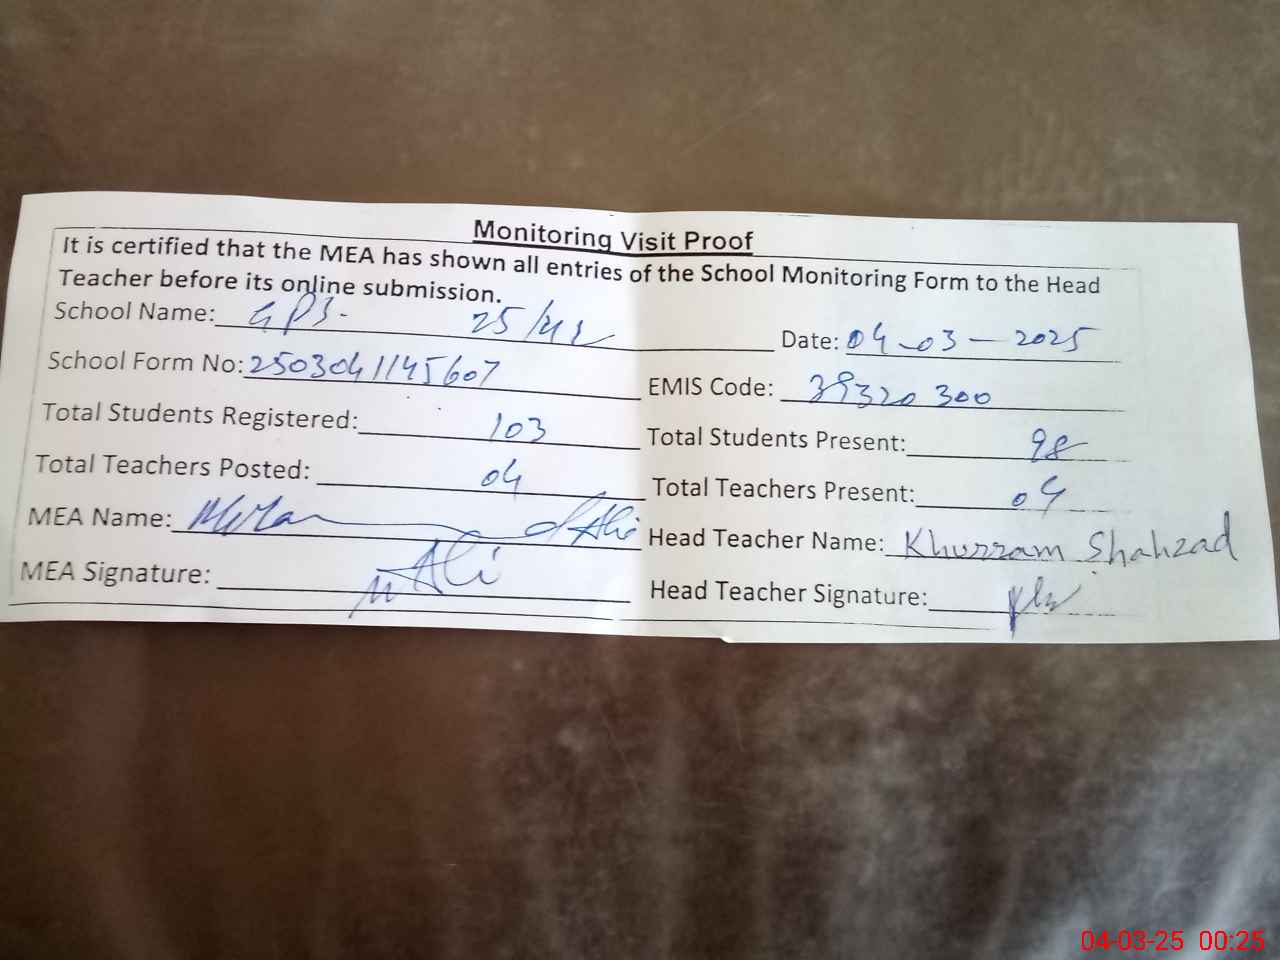 Monitoring Visit Proof
It is certified that the MEA has shown all entries of the School Monitoring Form to the Head
Teacher before its online submission.
School Name: GPS- 25/ Date: 04-03-2025
School Form No: 2503041145607 EMIS Code: 39320300
Total Students Registered: 103 Total Students Present: 98
Total Teachers Posted: 04 Total Teachers Present: 04
MEA Name: Ali Head Teacher Name: Khurram Shahzad
MEA Signature: Ali Head Teacher Signature:
04-03-25 00:25